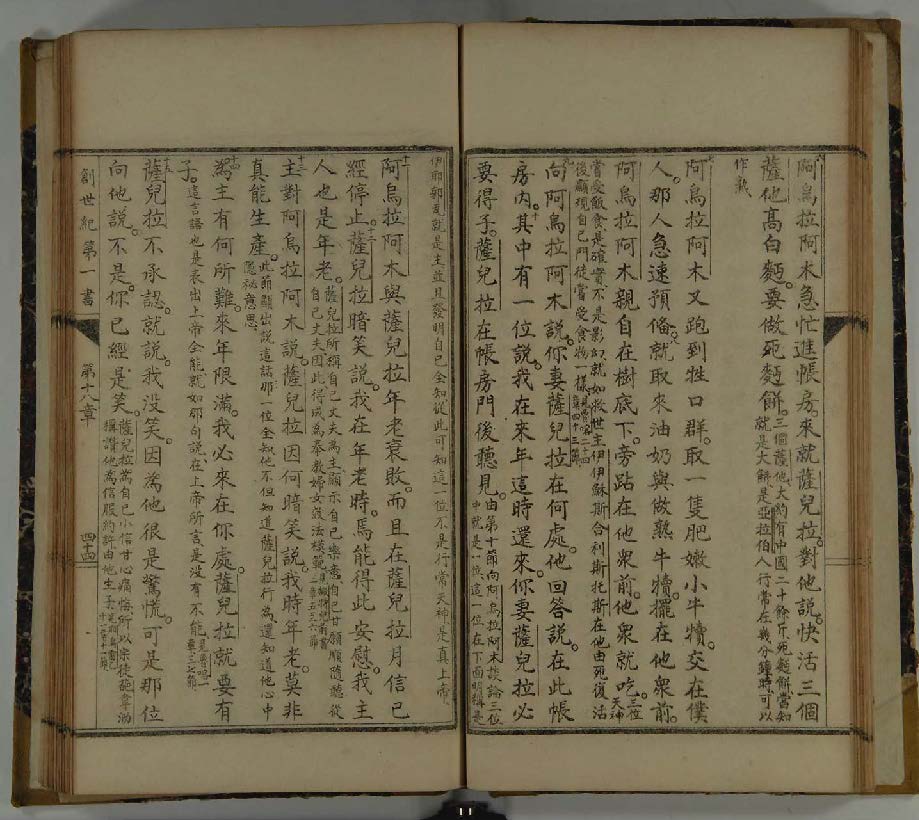 阿烏拉阿木急忙進帳房。來就薩兒拉。對他說。快活三個
薩他高白麵。要做死麵餅。三個薩他大約有中國二十餘斤。死麵餅當知
就是大餅。是亞拉伯人行常在幾分鐘時可以
作熟
阿烏拉阿木又跑到牲口群。取一隻肥嫩小牛犢。交在僕
人。那人急速預偹。就取來油奶與做熟牛犢。擺在他衆前。
阿烏拉阿木親自在樹底下。旁跕在他衆前。他衆就吃。三位
天神
嘗受飯食。是確實不是影幻。就如救世主伊伊穌斯合利斯托斯在他由死復活
後顯現自己門徒當受食物一樣。
向阿烏拉阿木說。你妻薩兒拉在何處。他回答說。在此帳
房内。十其中有一位說。我在來年這時還來。你妻薩兒拉必
要得子。薩兒拉在帳房門後聽見。由第十節向阿烏拉阿木談論三位
中就是一位。這一位在下面明稱是
伊耶郭瓦就是主並且發明自己全知從此可知這一位不是行常天神是真上帝
阿烏拉阿木與薩兒拉年老衰敗。而且在薩兒拉月信已
經停止。薩兒拉暗笑說。我在年老時。焉能得此安慰。我主
人也是年老。薩兒拉所稱自己丈夫為主。顯示自己樂意。自己甘願順隨聽從
自己丈夫。因此得成為奉教婦女效法模範。
主對阿烏拉阿木說。薩兒拉因何暗笑說。我時年老。莫非
真能生產。此節顯出說這話那一位全知。他不但知道薩兒拉行為。還知道他心中
隱祕意思。
為主有何所難。來年限滿。我必來在你處。薩兒拉就要有
子。這言語也是表出上帝全能。就如那句說。在上帝所言是没有不能。
薩兒拉不承認。就說。我没笑。因為他很是驚慌。可是那位
向他說。不是。你已經是笑。薩兒拉為自己小信甘心痛悔。所以宗徒葩韋洛
稱讚他為信服約許由他生子
創世紀第一書
第十八章
四十四